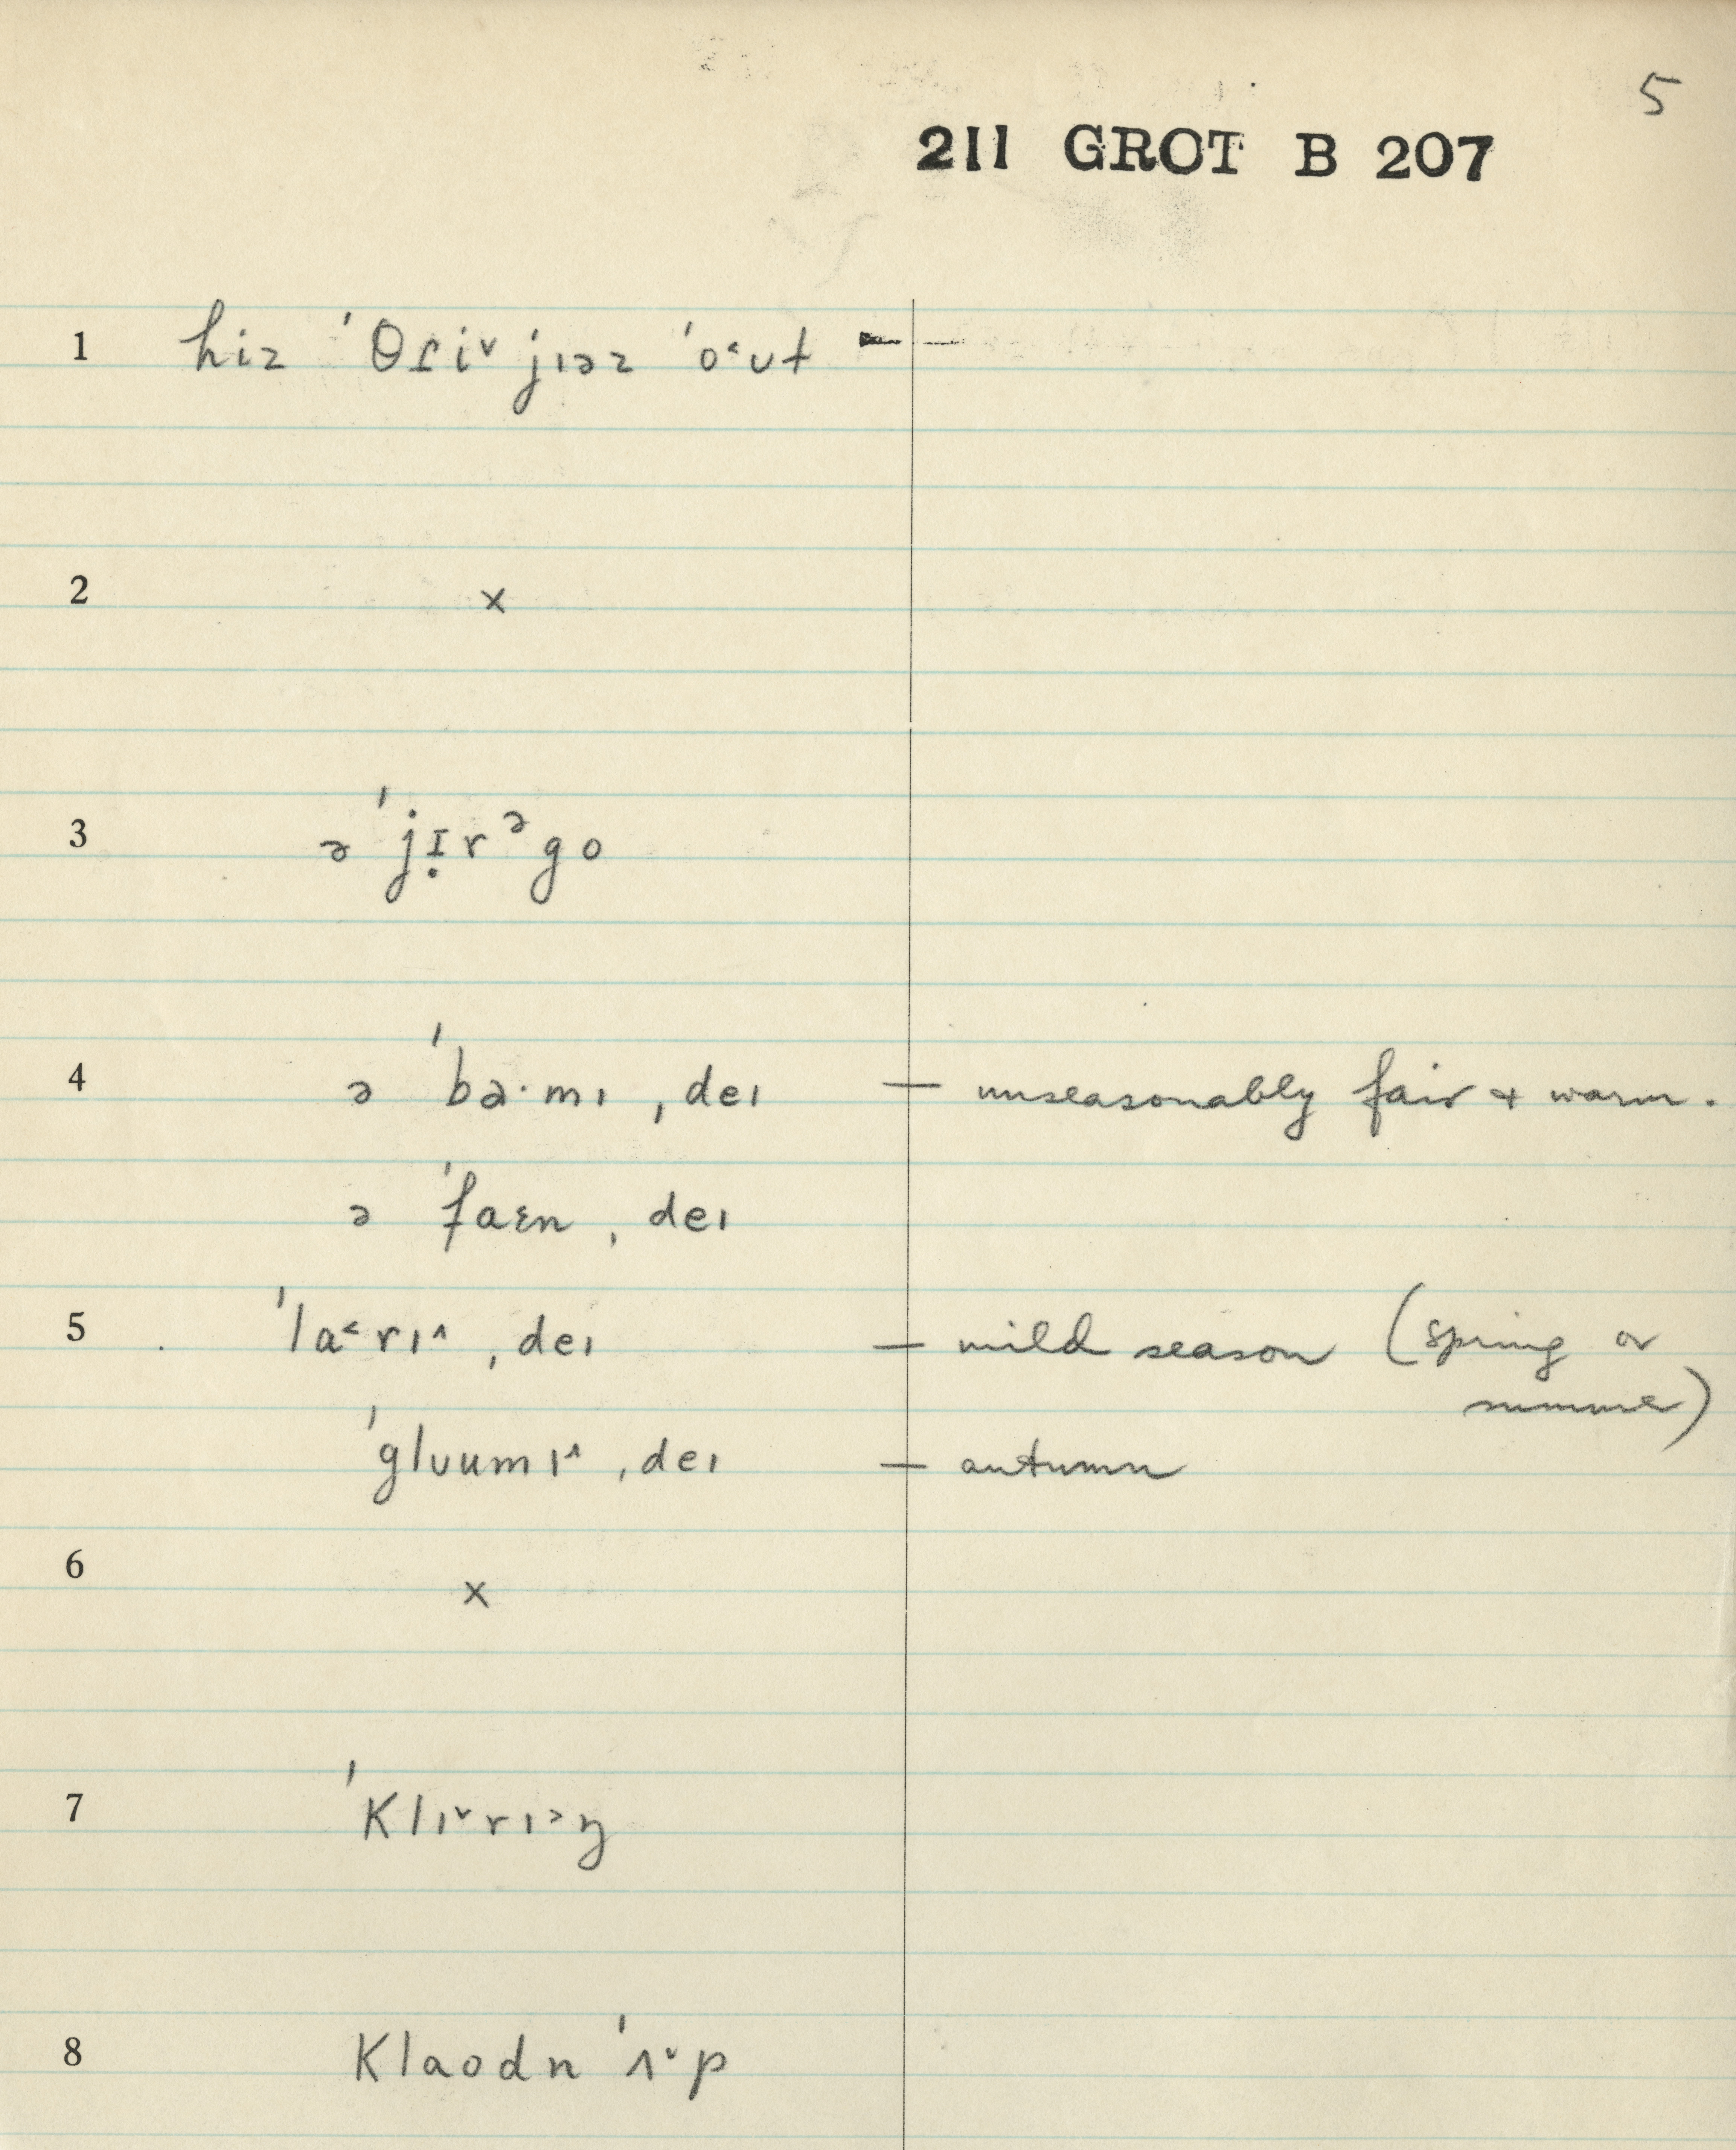 5
211 GROT B 207
1 hiz ˈθɾi˅ jɪəz ˈo˂ʊt –
2 ×
3 ə ˈjɪ̣rᵊgo
4 ə ˈba·mɪ ˌdeɪ — unseasonably fair + warm.
ə ˈfaɛn ˌdeɪ
5 ˈla˂rɪ˄ ˌdeɪ — mild season (spring or
summer)
ˈglʊumɪ˄ ˌdeɪ — autumn
6 ×
7 ˈklɪ˅rɪ˃ŋ
8 klaodn ˈʌ˅p